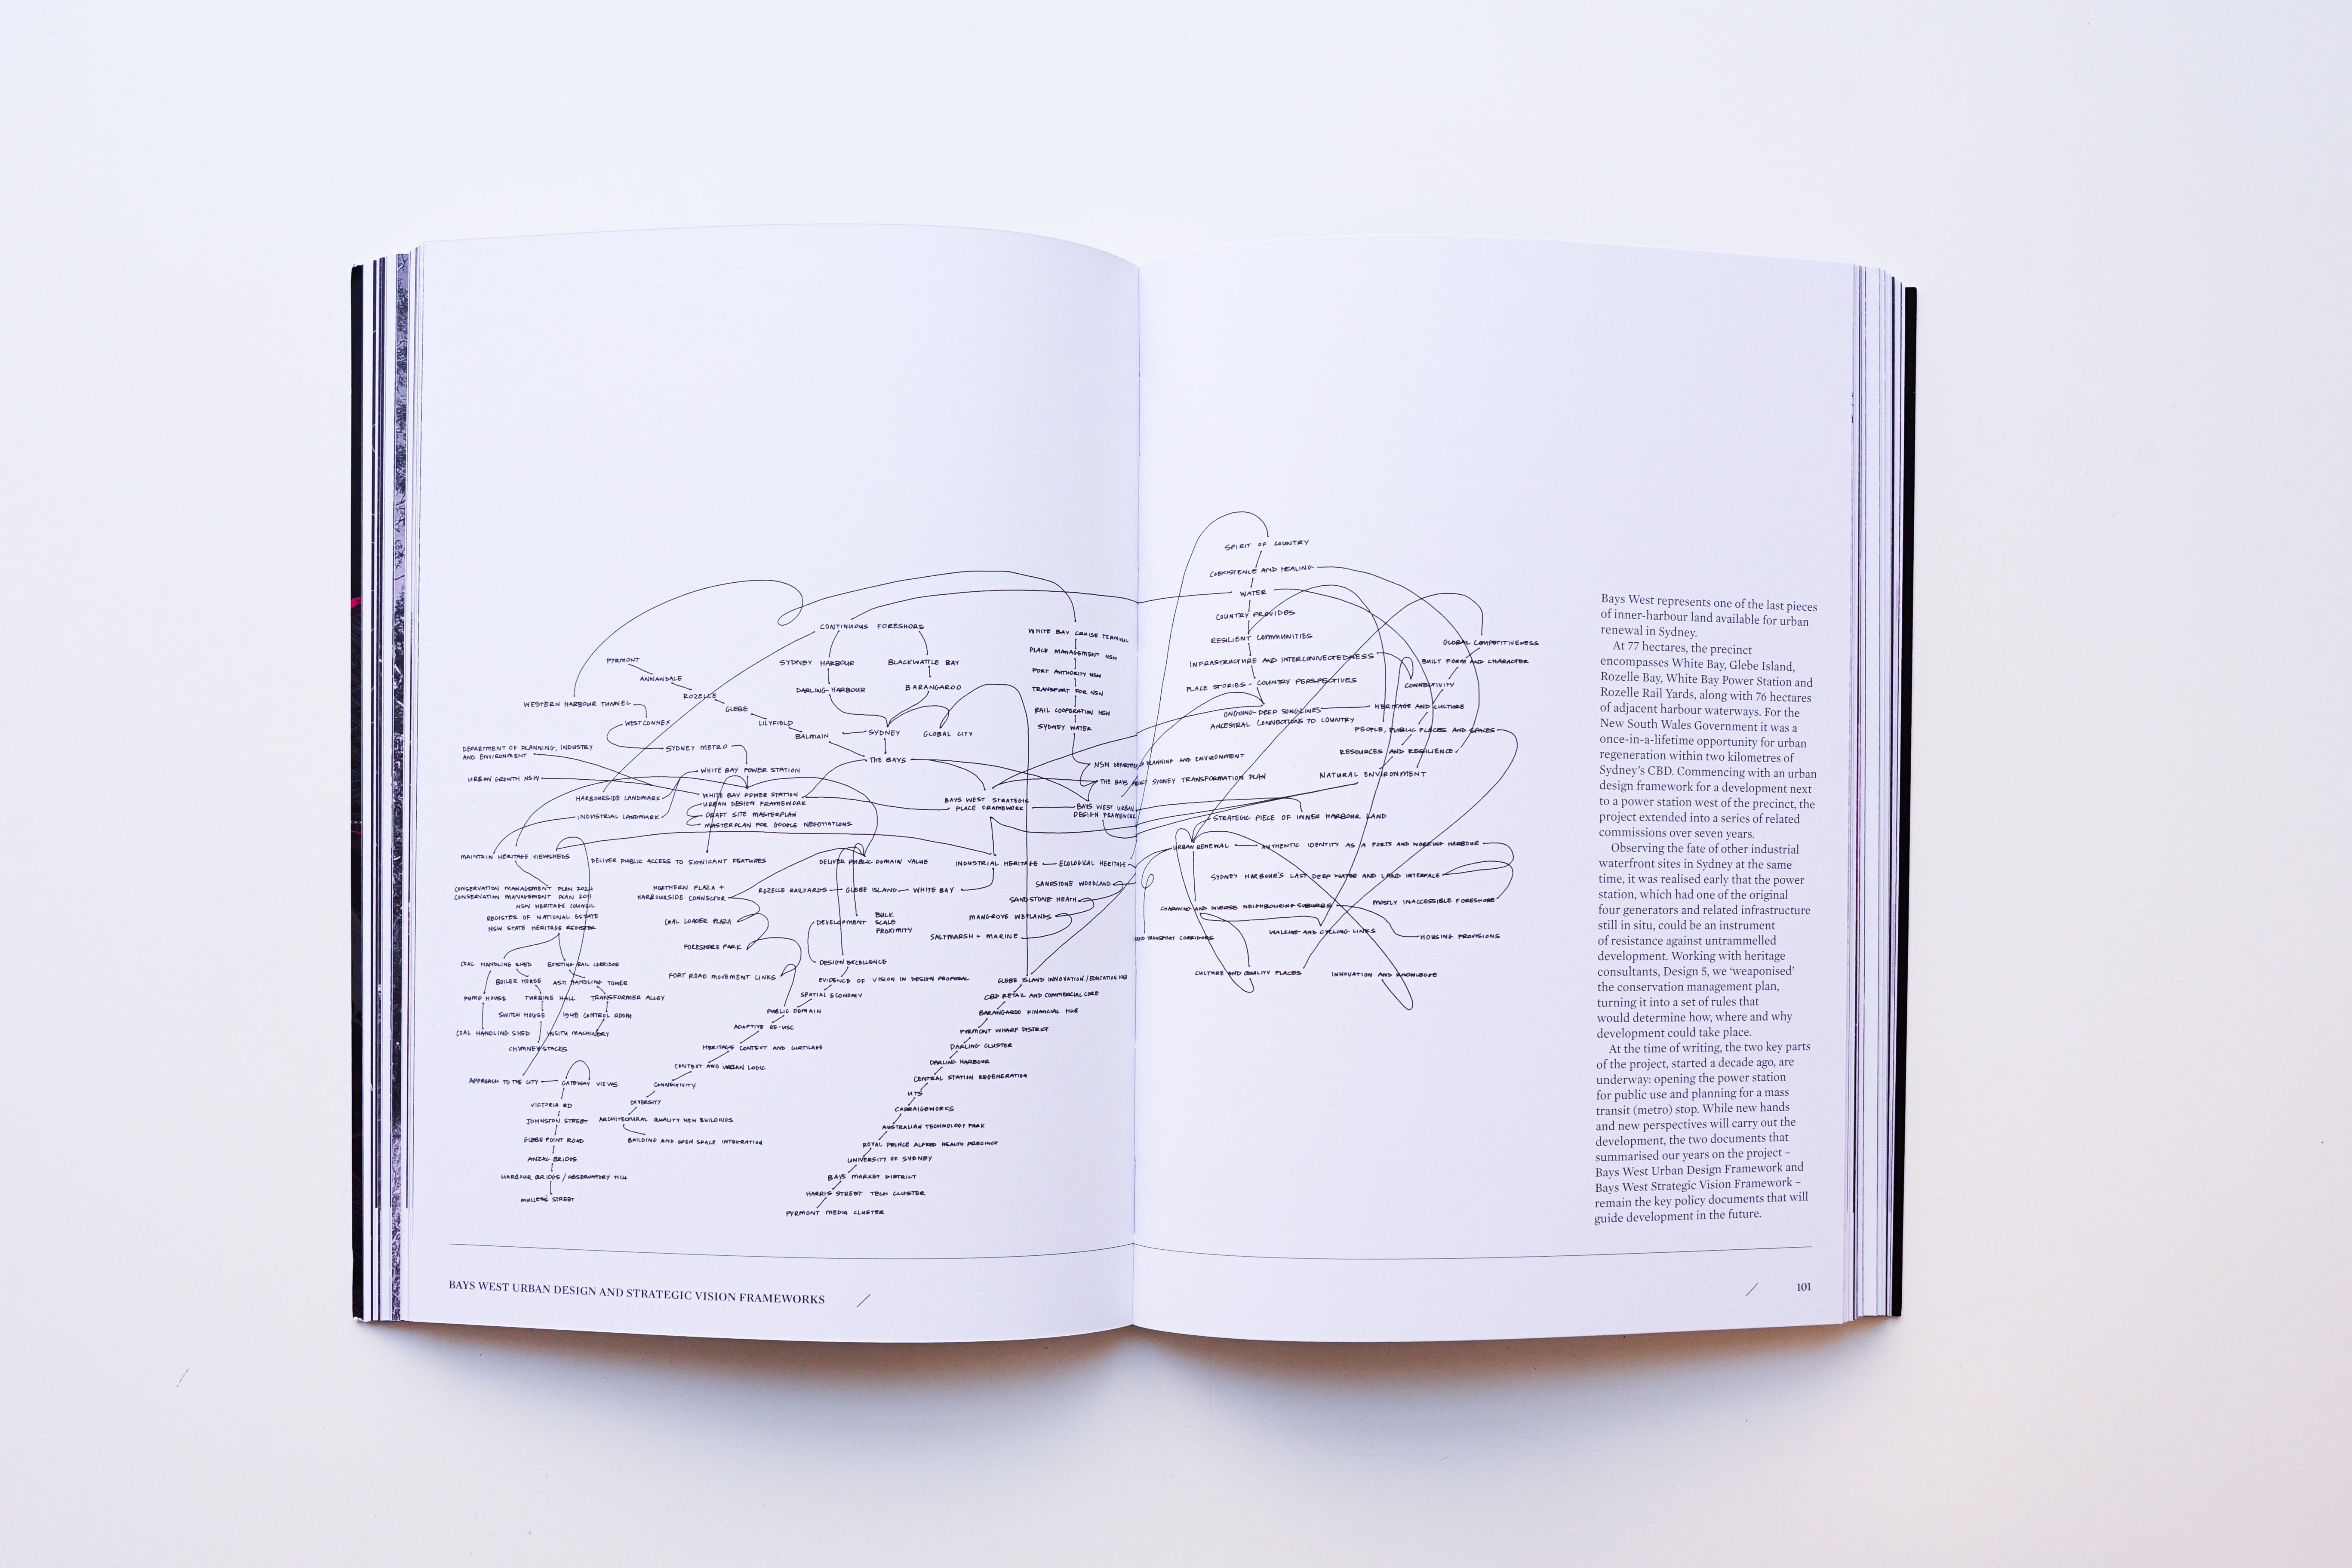 SPIRIT OF COUNTRY
COEXISTENCE AND HEALING
WATER
COUNTRY PROVIDES
RESILIENT COMMUNITIES
INFRASTRUCTURE AND INTERCONNECTEDNESS
PLACE STORIES - COUNTRY PERSPECTIVES
ONGOING DEEP SONGLINES
ANCESTRAL CONNECTIONS TO COUNTRY
GLOBAL COMPETITIVENESS
BUILT FORM AND CHARACTER
CONNECTIVITY
HERITAGE AND CULTURE
PEOPLE, PUBLIC PLACES AND SPACES
RESOURCES AND RESILIENCE
NATURAL ENVIRONMENT
CONTINUOUS FORESHORE
SYDNEY HARBOUR
BLACKWATTLE BAY
DARLING HARBOUR
BARANGAROO
SYDNEY
GLOBAL CITY
THE BAYS
PYRMONT
ANNANDALE
ROZELLE
GLEBE
LILYFIELD
BALMAIN
WESTERN HARBOUR TUNNEL
WESTCONNEX
SYDNEY METRO
DEPARTMENT OF PLANNING, INDUSTRY
AND ENVIRONMENT
URBAN GROWTH NSW
WHITE BAY POWER STATION
HARBOURSIDE LANDMARK
INDUSTRIAL LANDMARK
WHITE BAY POWER STATION
URBAN DESIGN FRAMEWORK
DRAFT SITE MASTERPLAN
MASTERPLAN FOR GOOGLE NEGOTIATIONS
WHITE BAY CRUISE TERMINAL
PLACE MANAGEMENT NSW
PORT AUTHORITY NSW
TRANSPORT FOR NSW
RAIL COOPERATION NSW
SYDNEY WATER
PLANNING AND ENVIRONMENT
SYDNEY TRANSFORMATION PLAN
BAYS WEST STRATEGIC
PLACE FRAMEWORK
BAYS WEST URBAN
DESIGN FRAMEWORK
STRATEGIC PIECE OF INNER HARBOUR LAND
URBAN RENEWAL
AUTHENTIC IDENTITY AS A PORTS AND WORKING HARBOUR
SYDNEY HARBOUR'S LAST DEEP WATER AND LAND INTERFACE
MOSTLY INACCESSIBLE FORESHORE
CHARMING AND DIVERSE NEIGHBOURING SUBURBS
TRANSPORT CORRIDORS
WALKING AND CYCLING LINKS
HOUSING PROVISIONS
CULTURE AND QUALITY PLACES
INNOVATION AND KNOWLEDGE
MAINTAIN HERITAGE VIEWSHEDS
DELIVER PUBLIC ACCESS TO SIGNICANT FEATURES
DELIVER PUBLIC DOMAIN VALUE
INDUSTRIAL HERITAGE
ECOLOGICAL HERITAGE
SANDSTONE WOODLAND
SANDSTONE HEATH
MANGROVE WETLANDS
SALTMARSH + MARINE
ROZELLE RAILYARDS
GLEBE ISLAND
WHITE BAY
CONSERVATION MANAGEMENT PLAN 2024
CONSERVATION MANAGEMENT PLAN 2011
NSW HERITAGE COUNCIL
REGISTER OF NATIONAL ESTATE
NSW STATE HERITAGE REGISTER
NORTHERN PLAZA +
HARBOURSIDE CONNECTOR
COAL LOADER PLAZA
FORESHORE PARK
PORT ROAD MOVEMENT LINKS
DEVELOPMENT
BULK
SCALE
PROXIMITY
DESIGN EXCELLENCE
EVIDENCE OF VISION IN DESIGN PROPOSAL
SPATIAL ECONOMY
PUBLIC DOMAIN
ADAPTIVE RE-USE
HERITAGE CONTEXT AND CURTILAGE
CONTEXT AND URBAN LOGIC
CONNECTIVITY
DIVERSITY
ARCHITECTURAL QUALITY NEW BUILDINGS
BUILDING AND OPEN SPACE INTEGRATION
COAL HANDLING SHED
EXISTING RAIL CORRIDOR
BOILER HOUSE
ASH HANDLING TOWER
PUMP HOUSE
TURBINE HALL
TRANSFORMER ALLEY
SWITCH HOUSE
1948 CONTROL ROOM
COAL HANDLING SHED
INSITU MACHINERY
CHIMNEY STACKS
APPROACH TO THE CITY
GATEWAY VIEWS
VICTORIA RD
JOHNSTON STREET
GLEBE POINT ROAD
ANZAC BRIDGE
HARBOUR BRIDGE / OBSERVATORY HILL
MULLENS STREET
GLEBE ISLAND INNOVATION / EDUCATION HUB
CBD RETAIL AND COMMERCIAL CORE
BARANGAROO FINANCIAL HUB
PYRMONT WHARF DISTRICT
DARLING CLUSTER
DARLING HARBOUR
CENTRAL STATION REGENERATION
UTS
CARRAIGEWORKS
AUSTRALIAN TECHNOLOGY PARK
ROYAL PRINCE ALFRED HEALTH PRECINCT
UNIVERSITY OF SYDNEY
BAYS MARKET DISTRICT
HARRIS STREET TECH CLUSTER
PYRMONT MEDIA CLUSTER
Bays West represents one of the last pieces
of inner-harbour land available for urban
renewal in Sydney.
At 77 hectares, the precinct
encompasses White Bay, Glebe Island,
Rozelle Bay, White Bay Power Station and
Rozelle Rail Yards, along with 76 hectares
of adjacent harbour waterways. For the
New South Wales Government it was a
once-in-a-lifetime opportunity for urban
regeneration within two kilometres of
Sydney's CBD. Commencing with an urban
design framework for a development next
to a power station west of the precinct, the
project extended into a series of related
commissions over seven years.
Observing the fate of other industrial
waterfront sites in Sydney at the same
time, it was realised early that the power
station, which had one of the original
four generators and related infrastructure
still in situ, could be an instrument
of resistance against untrammelled
development. Working with heritage
consultants, Design 5, we 'weaponised'
the conservation management plan,
turning it into a set of rules that
would determine how, where and why
development could take place.
At the time of writing, the two key parts
of the project, started a decade ago, are
underway: opening the power station
for public use and planning for a mass
transit (metro) stop. While new hands
and new perspectives will carry out the
development, the two documents that
summarised our years on the project –
Bays West Urban Design Framework and
Bays West Strategic Vision Framework –
remain the key policy documents that will
guide development in the future.
BAYS WEST URBAN DESIGN AND STRATEGIC VISION FRAMEWORKS /
/ 101